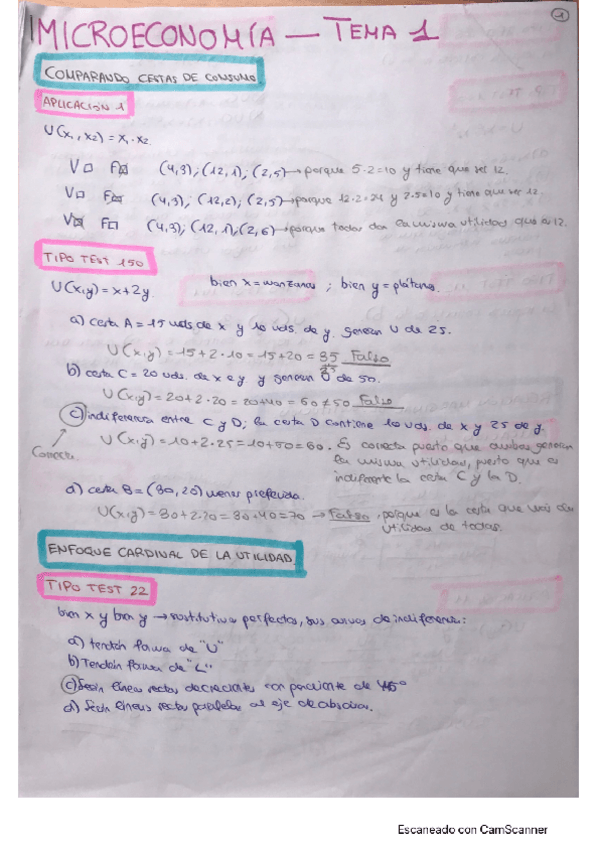 1
MICROECONOMÍA — TEMA 1
COMPARANDO CESTAS DE CONSUMO
APLICACIÓN 1
U(x₁, x₂) = x₁ · x₂
V□ F☒ (4,3); (12,1); (2,5) → porque 5·2=10 y tiene que ser 12.
V□ F☒ (4,3); (12,2); (2,5) → porque 12·2=24 y 2·5=10 y tiene que ser 12.
V☒ F□ (4,3); (12,1); (2,6) → porque todas dan la misma utilidad que es 12.
TIPO TEST 150
U(x,y) = x+2y. bien x = manzanas ; bien y = plátanos.
a) cesta A = 15 uds de x y 10 uds. de y. generan U de 25.
U(x,y) = 15+2·10 = 15+20 = 35 Falso
b) cesta C = 20 uds. de x e y y generan U de 50.
U(x,y) = 20+2·20 = 20+40 = 60 ≠ 50 Falso
c) indiferencia entre C y D; la cesta D contiene 10 uds. de x y 25 de y.
U(x,y) = 10+2·25 = 10+50 = 60. Es correcta puesto que ambas generan
Correcta la misma utilidad, puesto que es
indiferente la cesta C y la D.
d) cesta B = (30,20) menos preferida.
U(x,y) = 30+2·20 = 30+40 = 70 → Falso, porque es la cesta que más da
utilidad de todas.
ENFOQUE CARDINAL DE LA UTILIDAD
TIPO TEST 22
bien x y bien y → sustitutivos perfectos, sus curvas de indiferencia:
a) tendrán forma de "U"
b) Tendrán forma de "L"
c) Serán líneas rectas decrecientes con pendiente de 45°
d) Serán líneas rectas paralelas al eje de abscisas.
Escaneado con CamScanner